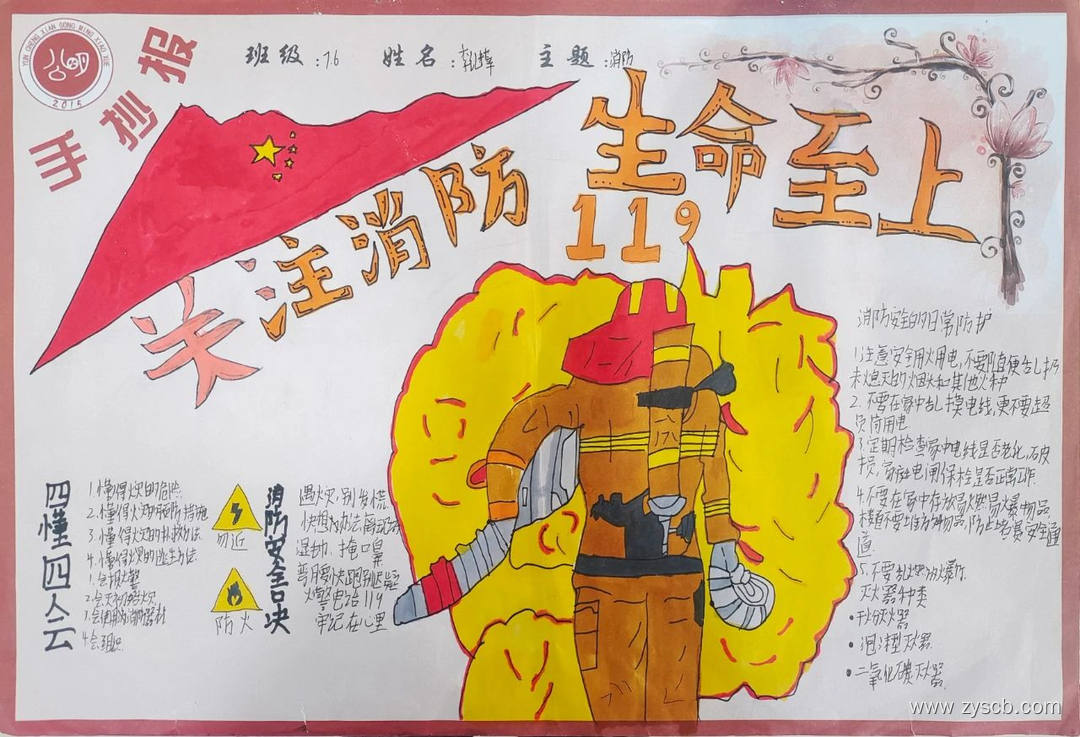 YUN CHENG XIAN GONG MING XIAO XUE
2015
手抄报
班级：76 姓名： 主题：消防
关注消防 生命至上
119
四懂四会
1.懂得火灾的危险
2.懂得火灾的预防措施
3.懂得火灾的扑救方法
4.懂得火灾的逃生方法
1.会报火警
2.会灭初起火灾
3.会使用消防器材
4.会组织
勿近
防火
消防安全口诀
遇火灾，别发慌
快想办法离现场
湿抽，掩口鼻
弯腰快跑别迟疑
火警电话119
牢记在心里
消防安全的日常防护
1.注意安全用火用电，不要随便乱扔
未熄灭的烟头和其他火种
2.不要在家中乱接电线，更不要超
负荷用电
3.定期检查家中电线是否老化，破
损，家庭电闸保栓是否正常工作
4.不要在家中存放易燃易爆物品
楼道不要堆放杂物品，防止堵塞安全通
道
5.不要乱燃放爆炸
灭火器种类
•干粉灭火器
•泡沫型灭火器
•二氧化碳灭火器
www.zyscb.com